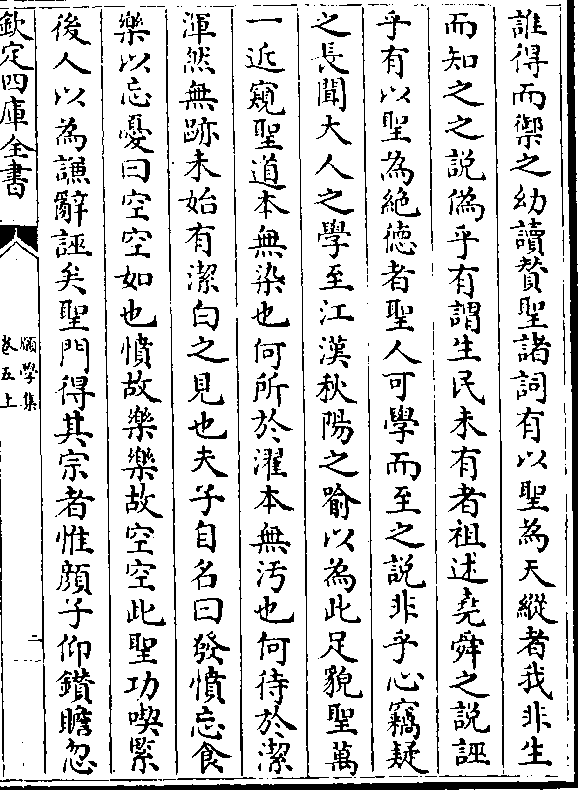 誰得而禦之幼讀贊聖諸詞有以聖為天縱者我非生
而知之之說偽乎有謂生民未有者祖述堯舜之說誣
乎有以聖為絶德者聖人可學而至之說非乎心竊疑
之長聞大人之學至江漢秋陽之喻以為此足貌聖萬
一近窺聖道本無染也何所於濯本無汚也何待於潔
渾然無跡未始有潔白之見也夫子自名曰發憤忘食
樂以忘憂曰空空如也憤故樂樂故空空此聖功喫緊
後人以為謙辭誣矣聖門得其宗者惟顔子仰鑚瞻忽
欽定四庫全書
願學集
卷五上
二